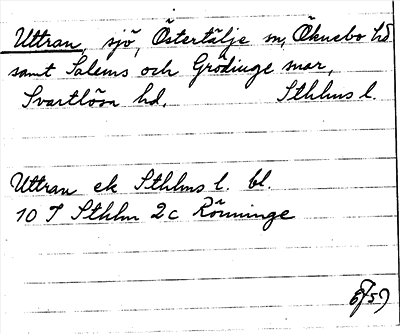 Uttran, sjö, Östertälje sn, Öknebo hd
samt Salems och Grödinge snar,
Svartlösa hd, Sthlms l.
Uttran ek Sthlms l. bl.
10 I Sthlm 2c Rönninge